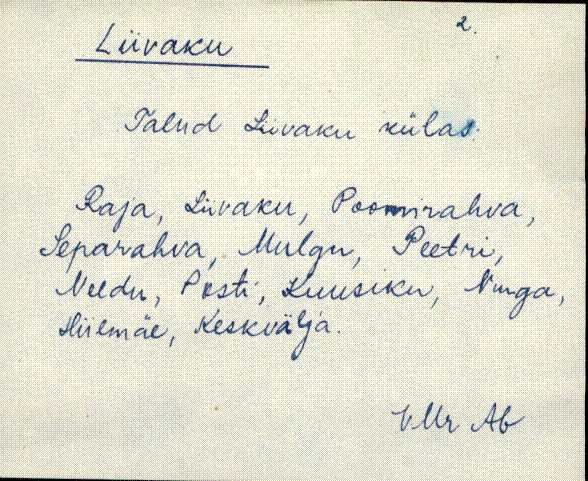 2.
Liivaku
Talud Liivaku külas.
Raja, Liivaku, Poomirahva,
Separahva, Mulgu, Peetri,
Needu, Posti, Kuusiku, Nurga,
Hiiemäe, Keskvälja.
VMr Ab